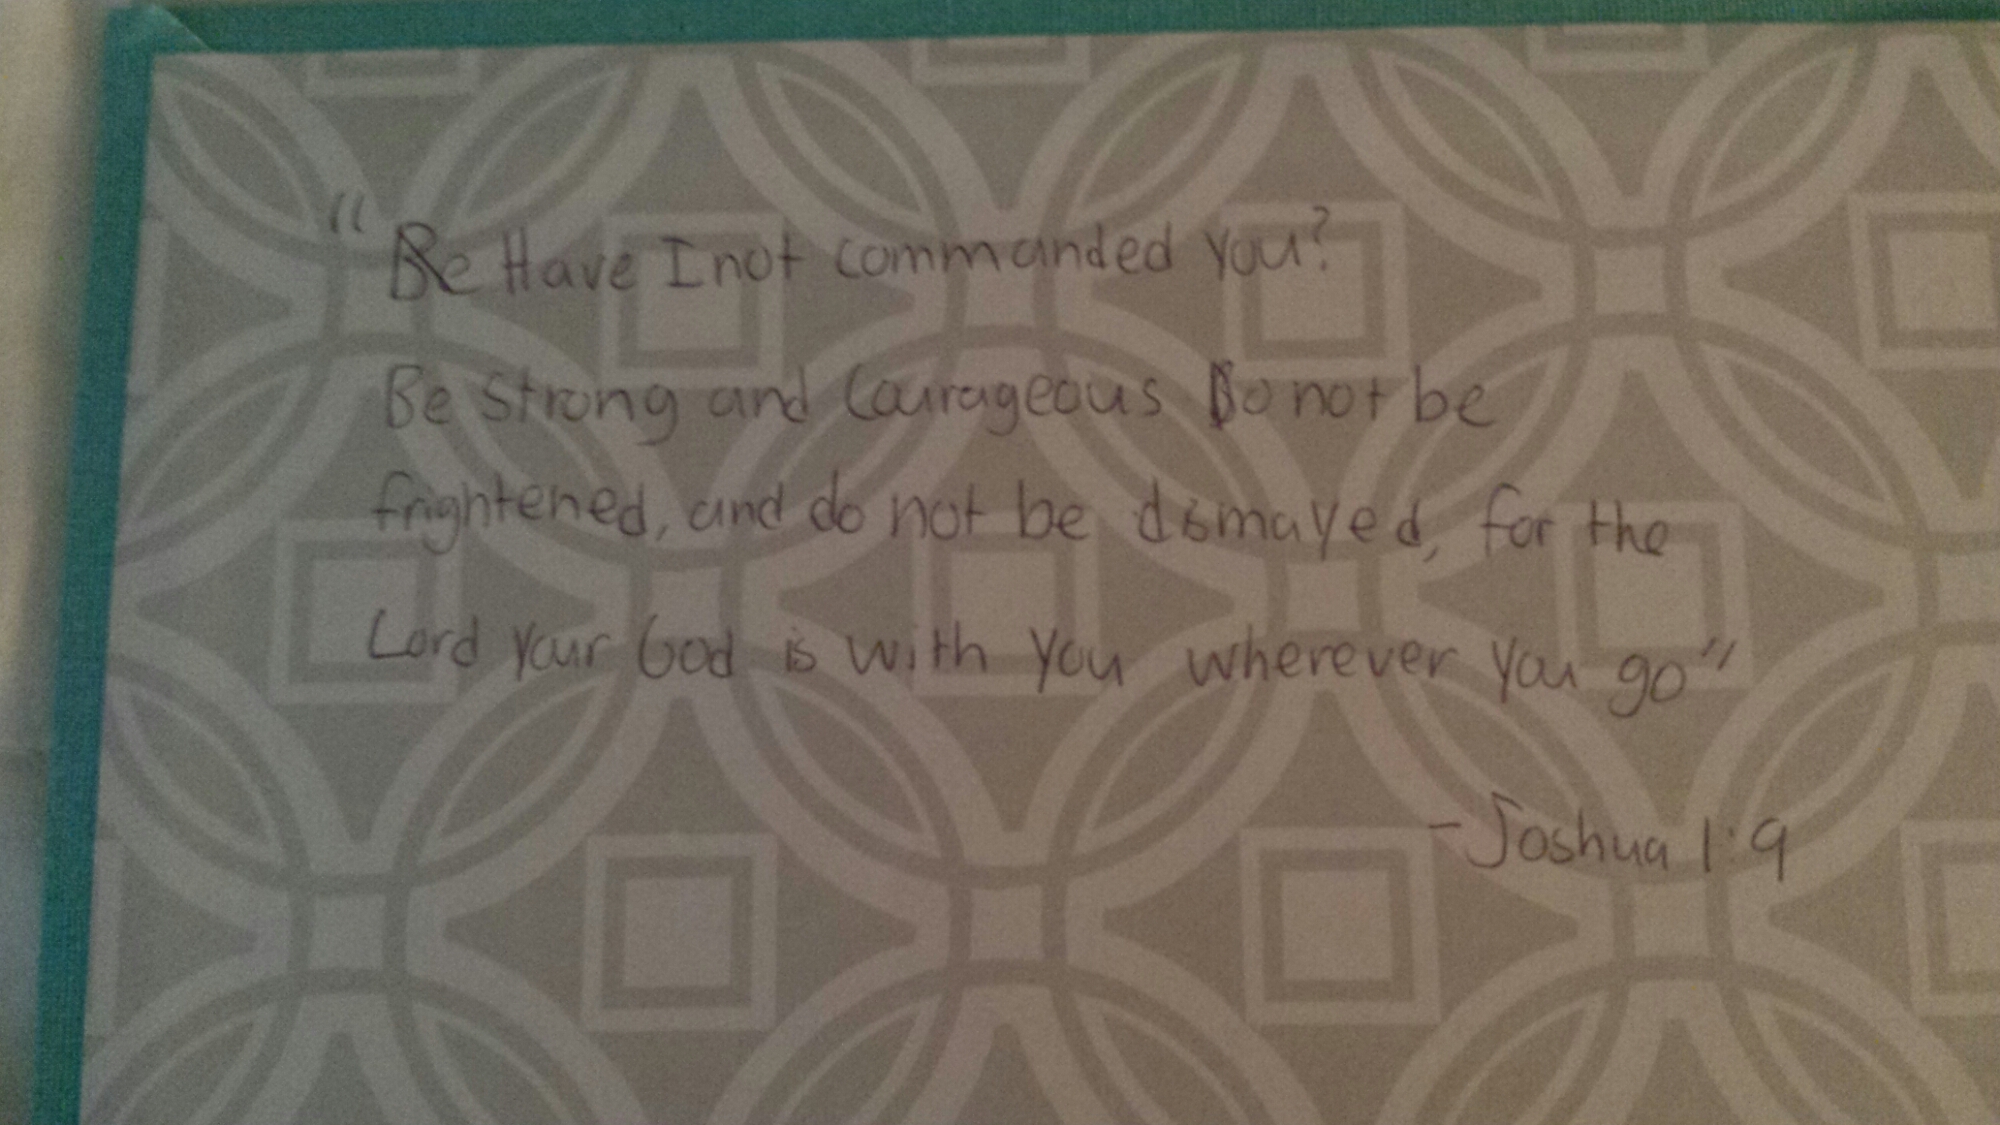 "Be Have I not commanded you?
Be Strong and Courageous Do not be
frightened, and do not be dismayed, for the
Lord your God is with you wherever you go"
- Joshua 1:9